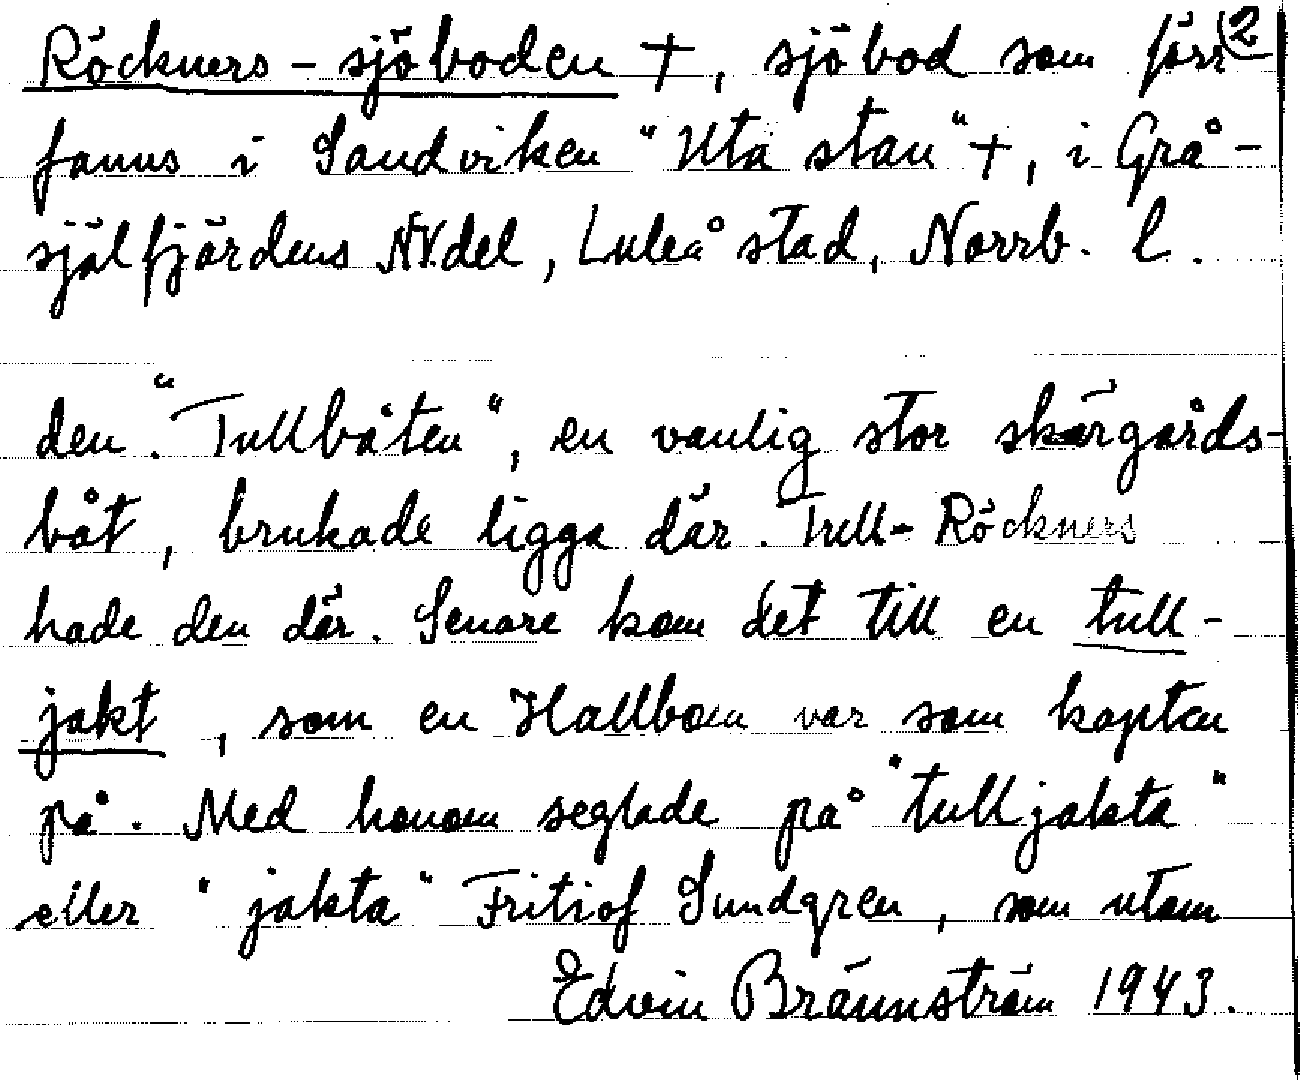 Röckners-sjöboden †, sjöbod som förr (2
fanns i Sandviken "Uta stan" †, i Grå-
själfjärdens NV.del, Luleå stad, Norrb. l.
den. "Tullbåten", en vanlig stor skärgårds-
båt, brukade ligga där. Tull-Röckners
hade den där. Senare kom det till en tull-
jakt, som en Hallbom var som kapten
på. Med honom seglade på "tulljakta"
eller "jakta" Fritiof Sundgren, som utom
Edvin Brännström 1943.